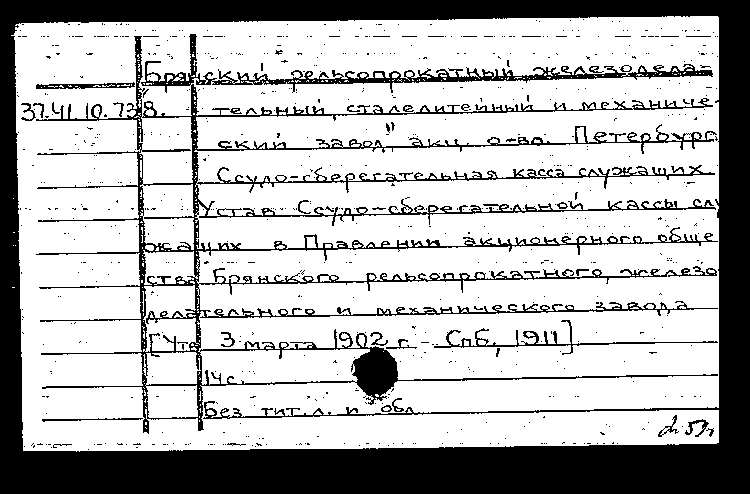 Брянский рельсопрокатный железодела-
37.41.10.738. тельный, сталелитейный и механиче-
ский завод" акц. о-во. Петербург
Ссудо-сберегательная касса служащих.
Устав Ссудо-сберегательной кассы слу
жащих в Правлении акционерного обще
ства Брянского рельсопрокатного, железо
делательного и механического завода
[Утв 3 марта 1902 г. - Спб, 1911]
14с.
Без тит. л. и обл